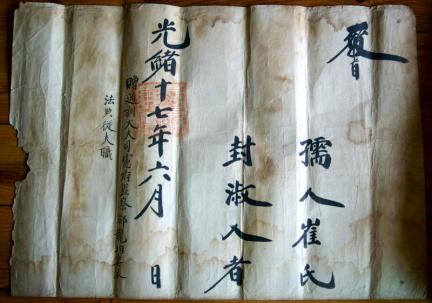 教旨
孺人崔氏
封淑人者
光緖十七年六月 日
贈通訓大夫司憲府監察
法典從夫職